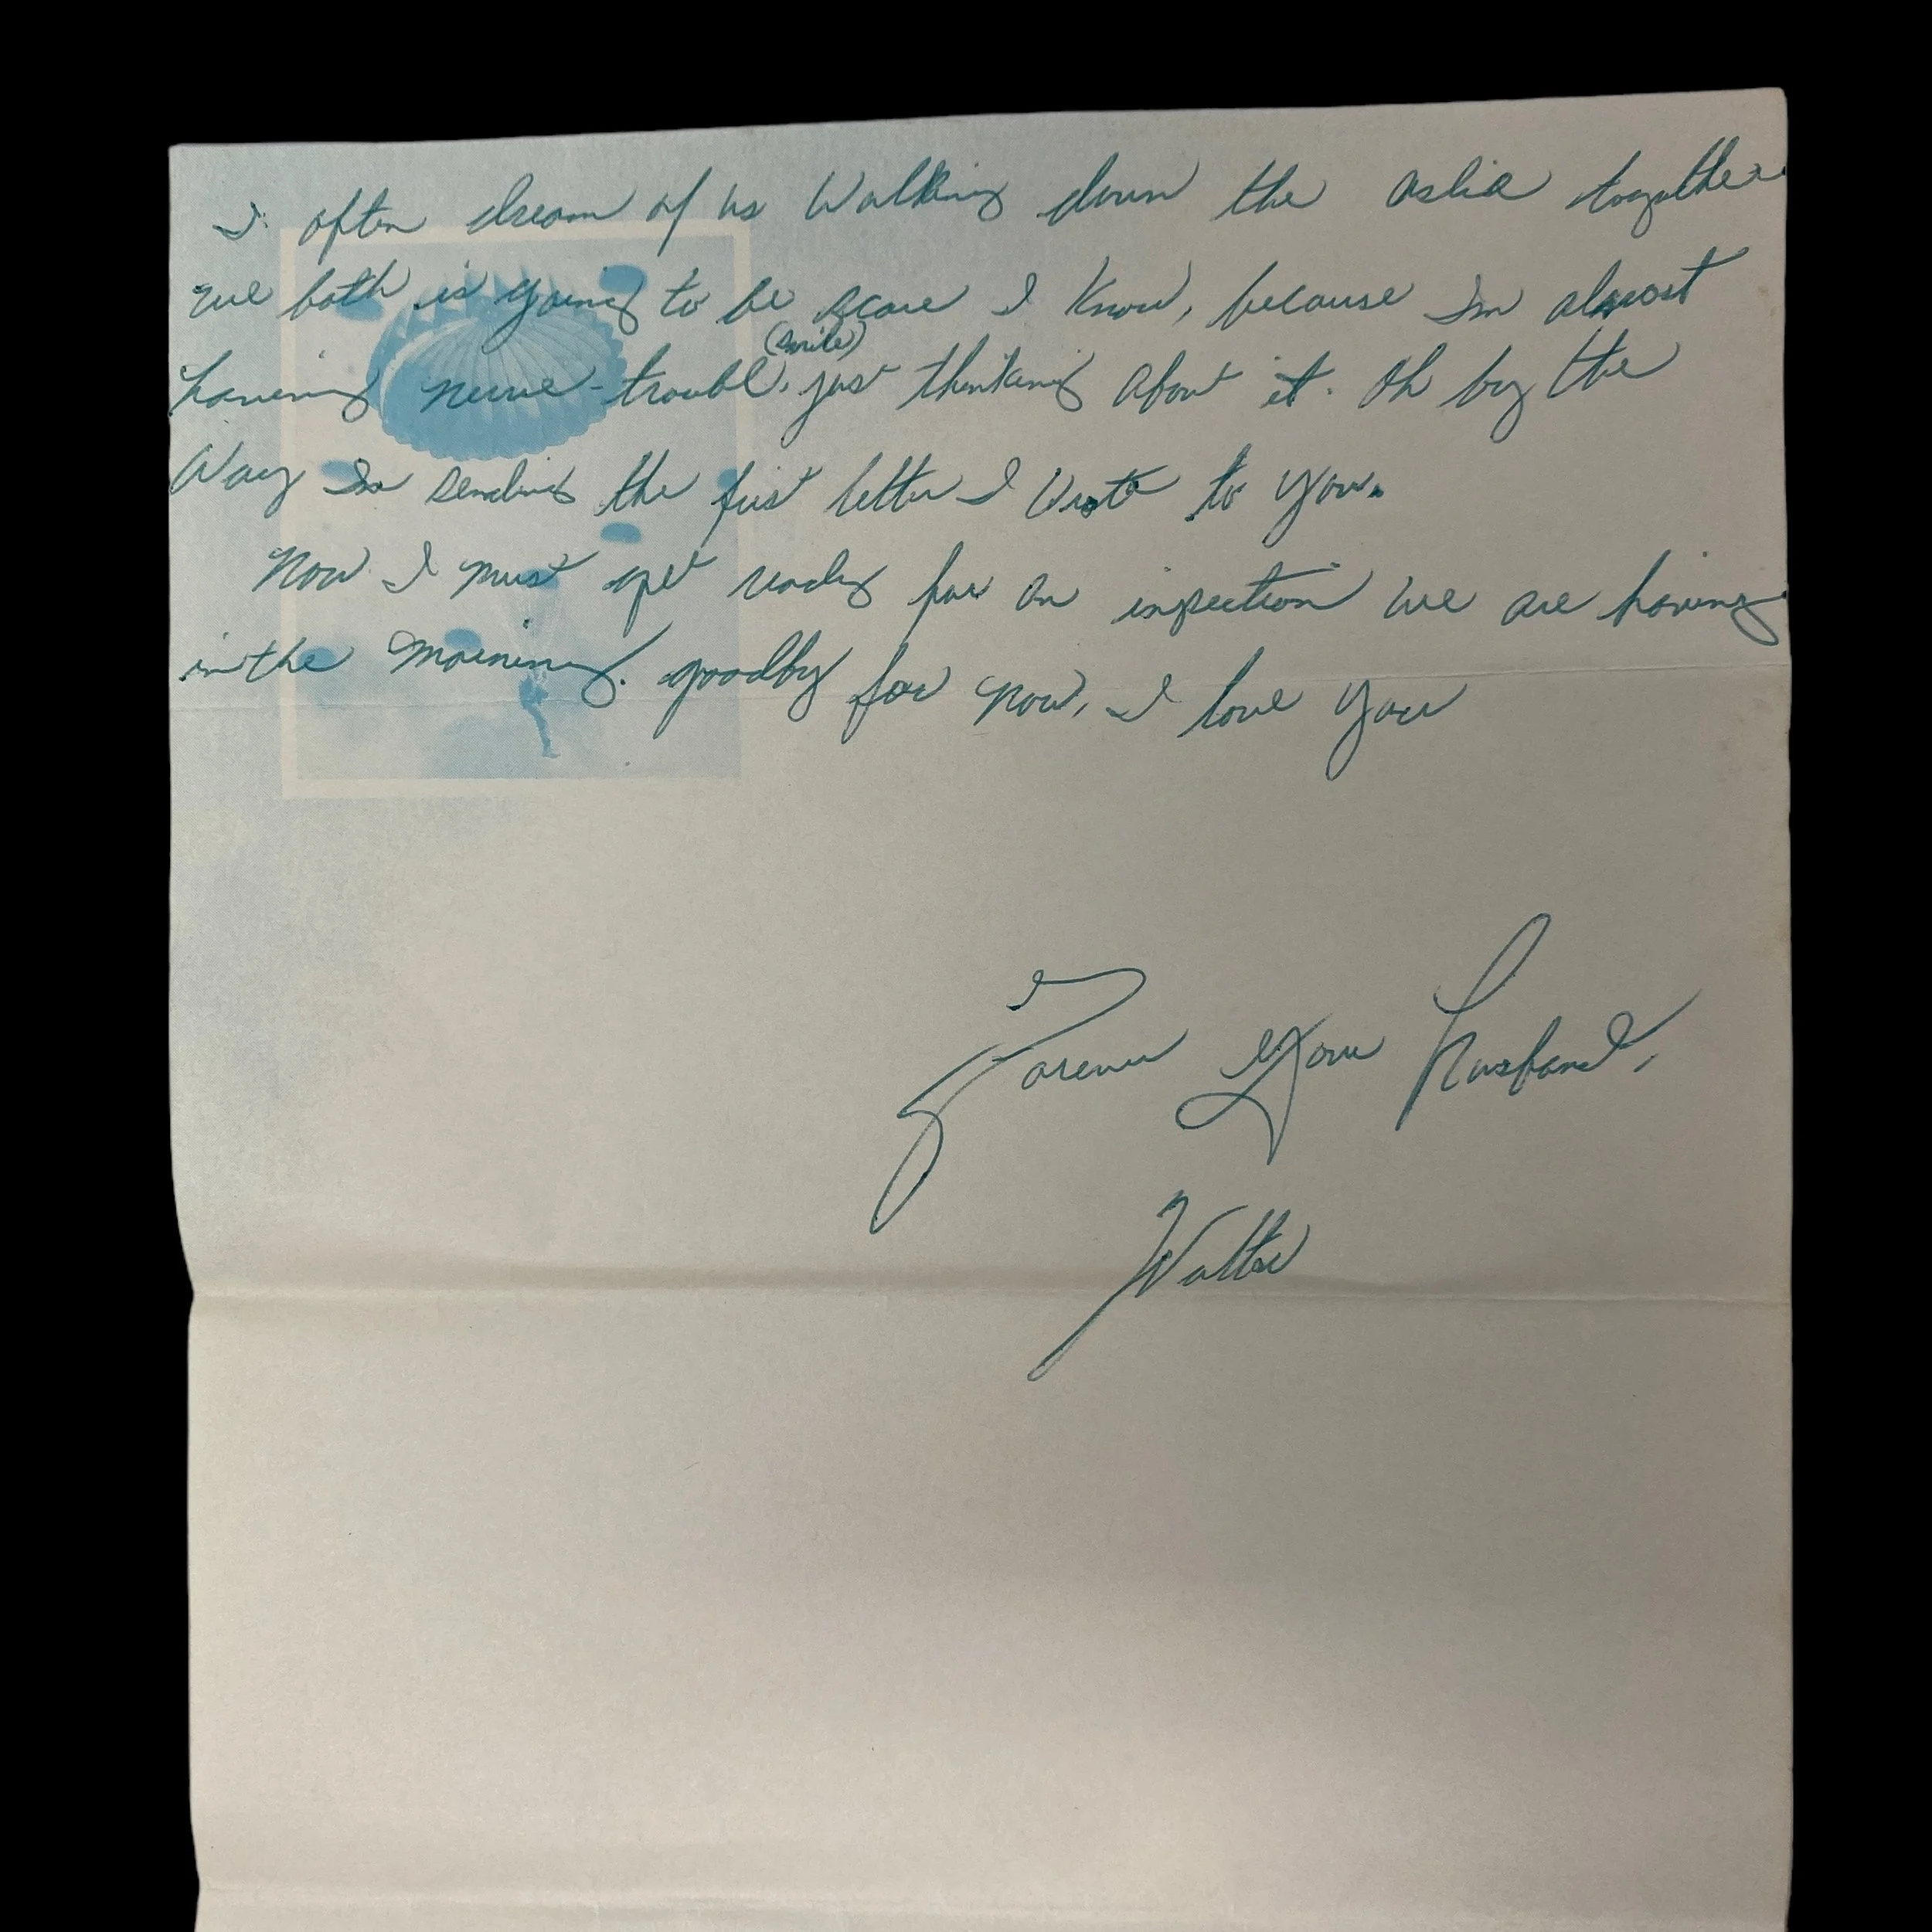 I often dream of us Walking down the aslia together
we both is going to be scare I know, because I'm almost
(smile)
having nerve-trouble, just thinking about it. Oh by the
Way I'm sending the first letter I Wrote to you.
Now I must get ready for an inspection we are having
in the morning. goodby for now, I love you
Forever Your Husband,
Walter